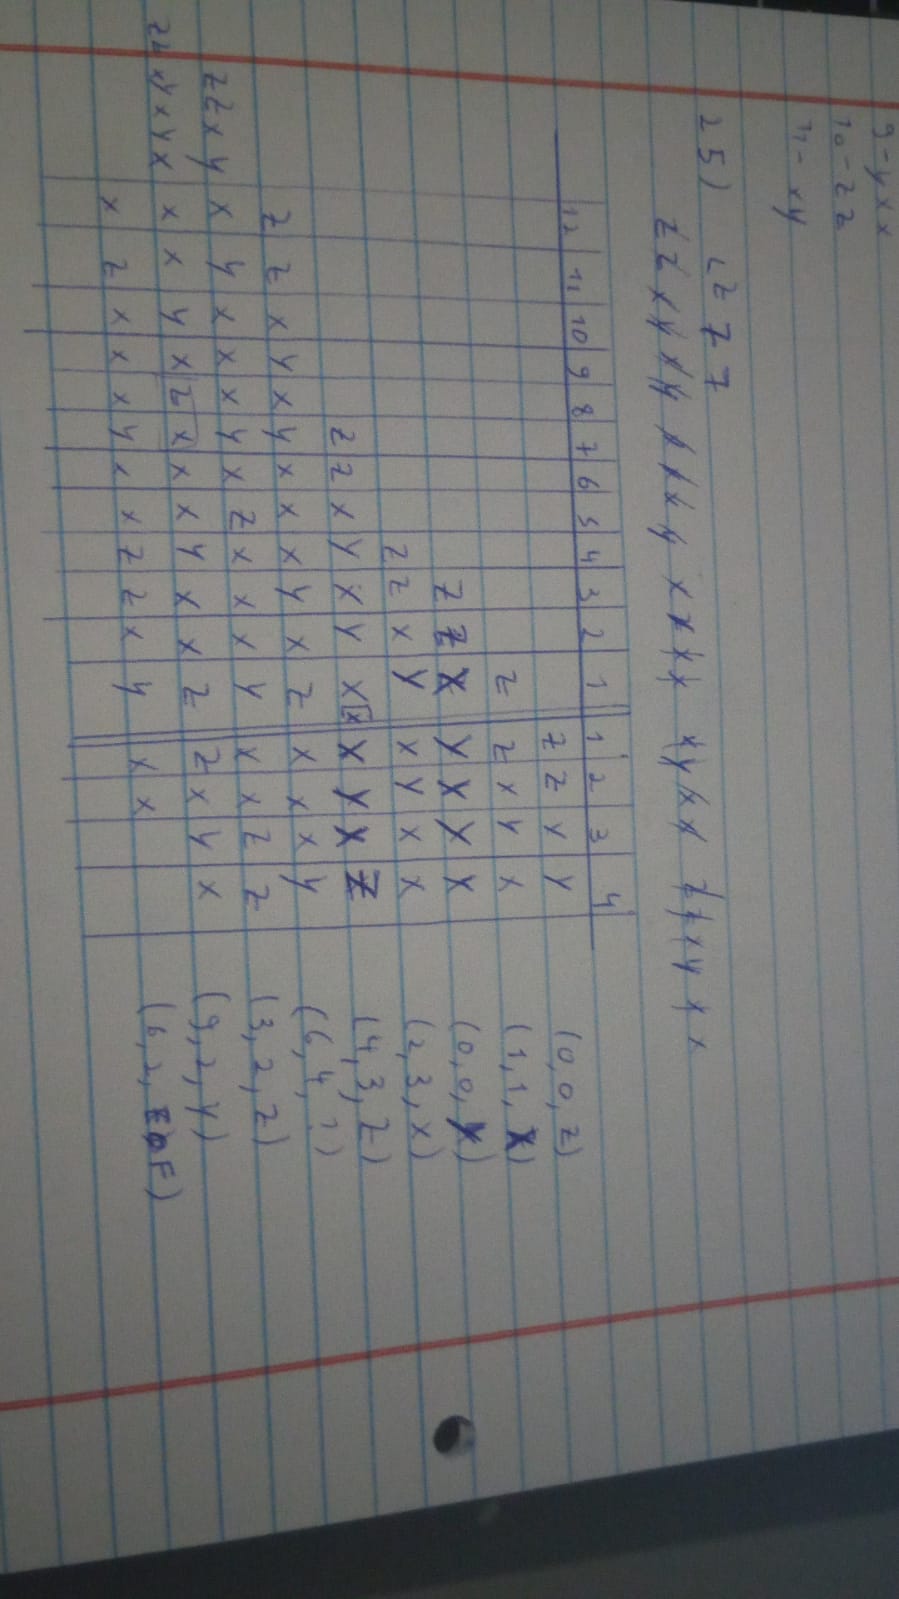 9-yxx
10-zz
11-xy
25) LZ77
zzxyxyxxxyxxxx xyxx zzxyxx
12 11 10 9 8 7 6 5 4 3 2 1 1 2 3 4
z z x y (0,0,z)
z z x y x (1,1,x)
z z x y x y x (0,0,y)
z z x y x y x x (2,3,x)
z z x y x y x x x y x z (4,3,z)
z z x y x y x x x y x z x x x y (6,4,?)
zzxy x y x x x y x z x x x y x x z z (3,2,z)
x x y x z x x x y x x z z x y x (9,2,y)
x z x x x y x x z z x y x x (6,2,EOF)